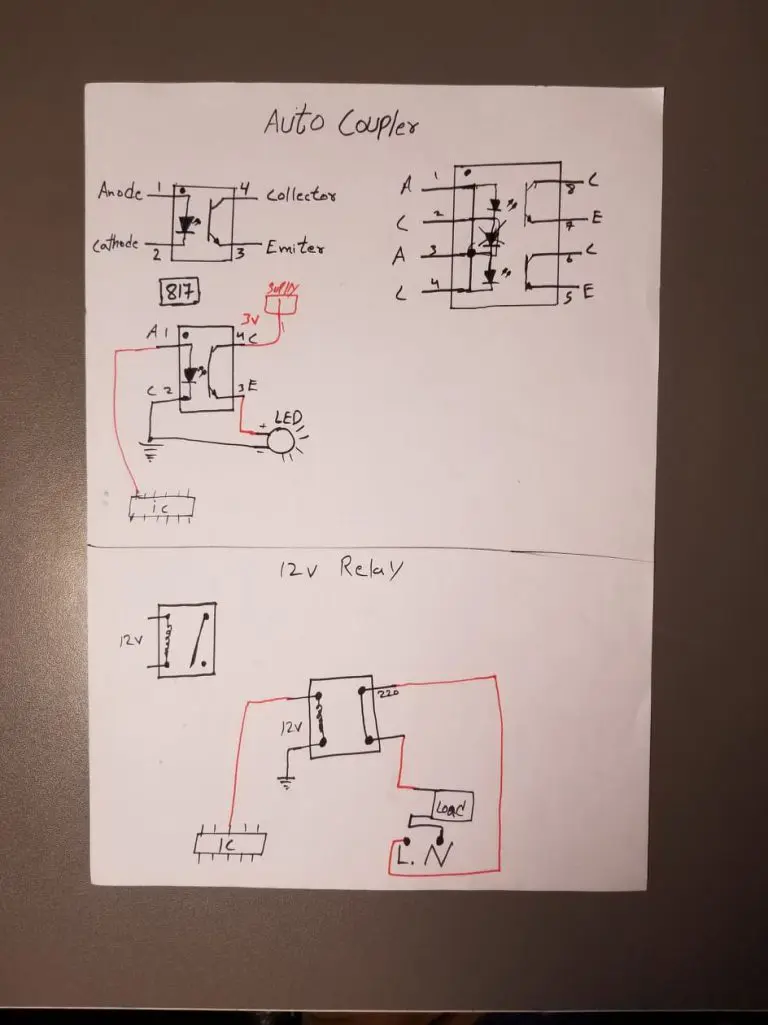 Auto Coupler
Anode 1 4 Collector
Cathode 2 3 Emiter
817
A 1 8 C
C 2 7 E
A 3 6 C
C 4 5 E
Supply
3V
A 1 4 C
C 2 3 E
LED
+
-
ic
12v Relay
12V
220
12V
Load
IC
L. N